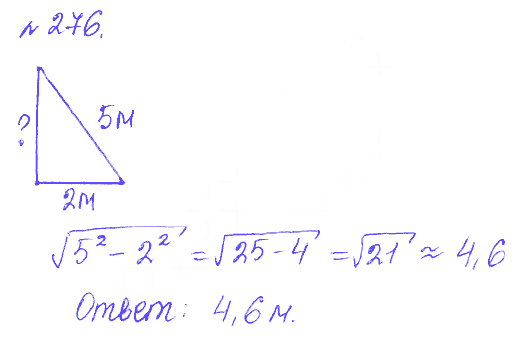 № 276.
5м
?
2м
√(5² - 2²) = √(25 - 4) = √21 ≈ 4,6
Ответ: 4,6 м.